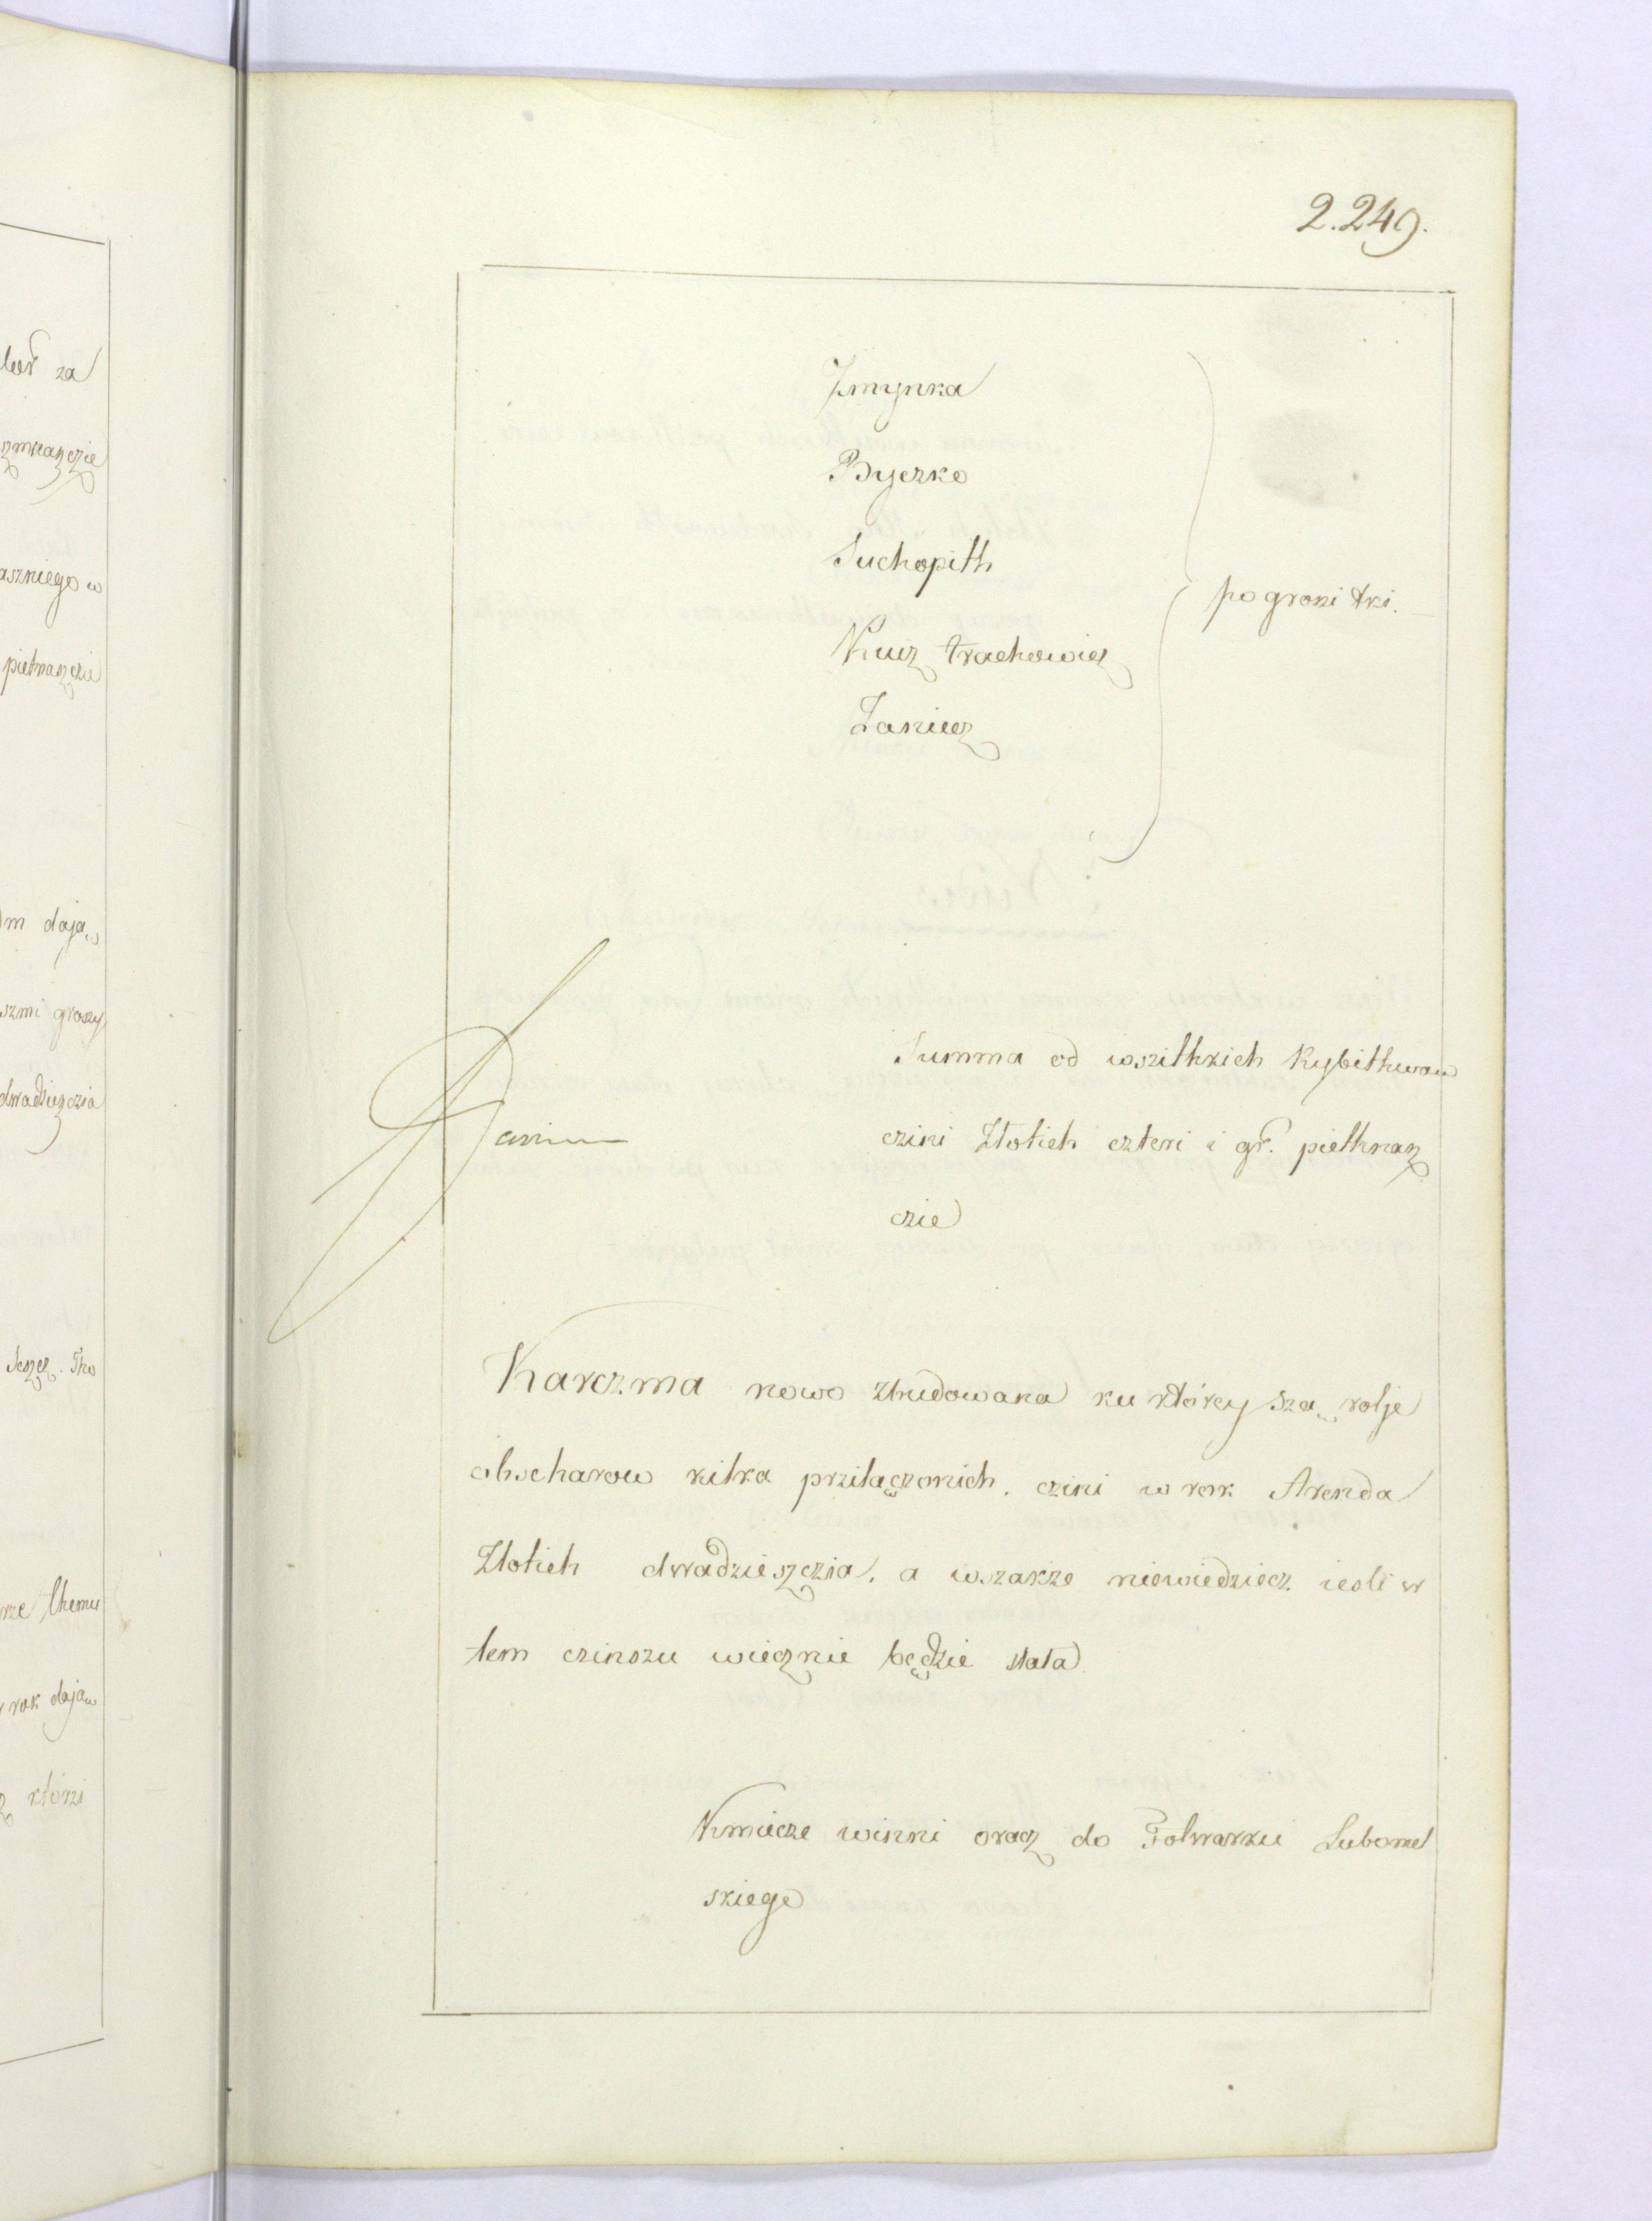 2.249.
Zmynka
Byczko
Suchopith
Kucz trachowicz
Zaniecz
po groszi tri.
Summa od wszithkich Rybithwow
czini Złotich czteri i gr. piethnasz
czie
Karczma nowo zbudowana ku którey sza rolje
obscharow kilka przilaczonich. czini w rok Arenda
Złotich dwadzieszczia. a wszakze niewiedziecz iesli w
tem czinszu wiecznie będzie stała
Kmiecze winni oracz do Folwarku Lubomel
skiego
low za
nmkanczie
aszniego w
pietnasczie
m daja
szmi groszy
dwadzieszczia
rze themu
rok daja
którzi